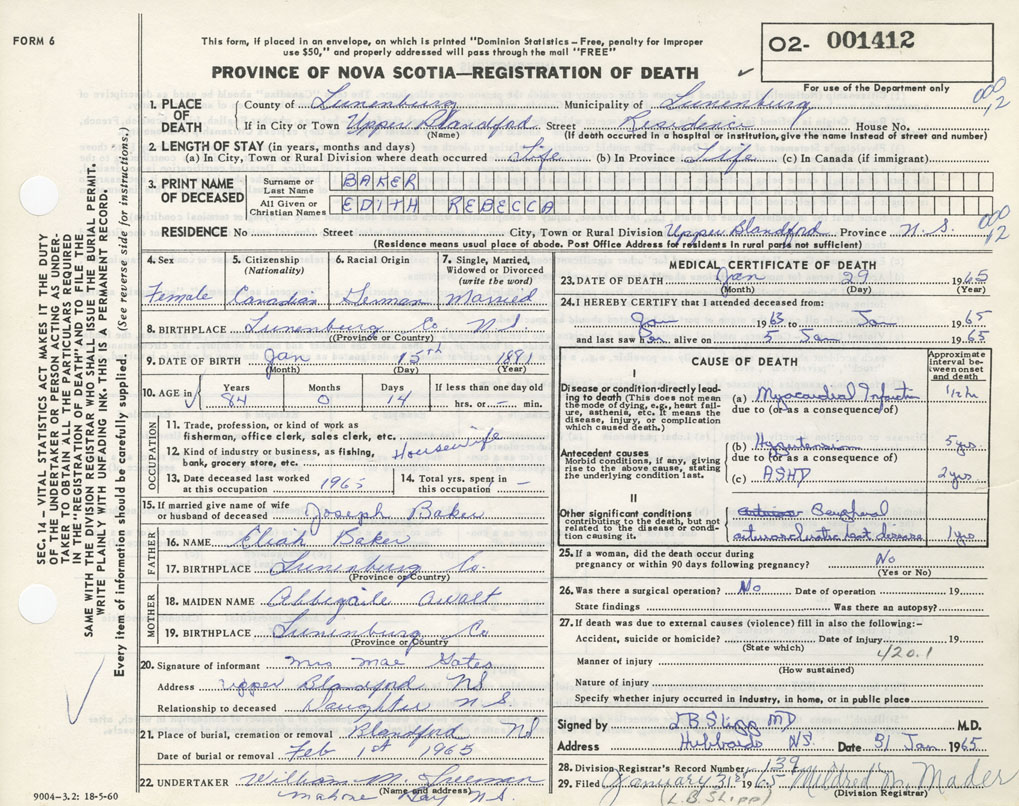 FORM 6
This form, if placed in an envelope, on which is printed "Dominion Statistics – Free, penalty for improper
use $50," and properly addressed will pass through the mail "FREE"
O2- 001412
PROVINCE OF NOVA SCOTIA—REGISTRATION OF DEATH
For use of the Department only
1. PLACE OF DEATH
County of Lunenburg Municipality of Lunenburg
000
12
If in City or Town Upper Blandford Street Residence House No.
(Name) (If death occurred in a hospital or institution, give the name instead of street and number)
2. LENGTH OF STAY (in years, months and days)
(a) In City, Town or Rural Division where death occurred Life (b) In Province Life (c) In Canada (if immigrant)
3. PRINT NAME OF DECEASED
Surname or Last Name BAKER
All Given or Christian Names EDITH REBECCA
RESIDENCE No Street City, Town or Rural Division Upper Blandford Province N.S.
000
12
(Residence means usual place of abode. Post Office Address for residents in rural parts not sufficient)
4. Sex
Female
5. Citizenship
(Nationality)
Canadian
6. Racial Origin
German
7. Single, Married,
Widowed or Divorced
(write the word)
Married
8. BIRTHPLACE Lunenburg Co N.S.
(Province or Country)
9. DATE OF BIRTH Jan 15th 1881
(Month) (Day) (Year)
10. AGE in
Years Months Days If less than one day old
84 0 14 hrs. or — min.
OCCUPATION
11. Trade, profession, or kind of work as
fisherman, office clerk, sales clerk, etc.
12. Kind of industry or business, as fishing,
bank, grocery store, etc.
Housewife
13. Date deceased last worked
at this occupation 1965
14. Total yrs. spent in
this occupation —
15. If married give name of wife
or husband of deceased Joseph Baker
FATHER
16. NAME Eliah Baker
17. BIRTHPLACE Lunenburg Co.
(Province or Country)
MOTHER
18. MAIDEN NAME Abbigaile Awalt
19. BIRTHPLACE Lunenburg Co
(Province or Country)
20. Signature of informant Mrs Mae Gates
Address Upper Blandford N.S.
Relationship to deceased Daughter N.S.
21. Place of burial, cremation or removal Blandford NS
Date of burial or removal Feb 1st 1965
22. UNDERTAKER William M.
(Name and address)
Mahone Bay N.S.
9004-3.2: 18-5-60
MEDICAL CERTIFICATE OF DEATH
23. DATE OF DEATH Jan 29 1965
(Month) (Day) (Year)
24. I HEREBY CERTIFY that I attended deceased from:
Jan 1963 to Jan 1965
and last saw alive on 5 Jan 1965
CAUSE OF DEATH
Approximate
interval be-
tween onset
and death
I
Disease or condition directly lead-
ing to death (This does not mean
the mode of dying, e.g., heart fail-
ure, asthenia, etc. It means the
disease, injury, or complication
which caused death.)
(a) Myocardial Infarction 1/2 hr
due to (or as a consequence of)
Antecedent causes
Morbid conditions, if any, giving
rise to the above cause, stating
the underlying condition last.
(b) Hypertension 5 yrs.
due to (or as a consequence of)
(c) ASHD 2 yrs
II
Other significant conditions
contributing to the death, but not
related to the disease or condi-
tion causing it.
Peripheral
disease 1 yrs
25. If a woman, did the death occur during
pregnancy or within 90 days following pregnancy? No
(Yes or No)
26. Was there a surgical operation? No Date of operation 19
State findings Was there an autopsy?
27. If death was due to external causes (violence) fill in also the following:-
Accident, suicide or homicide? Date of injury 19
(State which)
420.1
Manner of injury
(How sustained)
Nature of injury
Specify whether injury occurred in industry, in home, or in public place
Signed by J B Slipp MD M.D.
Address Hubbards NS. Date 31 Jan 1965
28. Division Registrar's Record Number 139
29. Filed January 31st 1965 Mildred M. Mader
(L.B. Slipp) (Division Registrar)
SEC. 14—VITAL STATISTICS ACT MAKES IT THE DUTY
OF THE UNDERTAKER OR PERSON ACTING AS UNDER-
TAKER TO OBTAIN ALL THE PARTICULARS REQUIRED
IN THE "REGISTRATION OF DEATH" AND TO FILE THE
SAME WITH THE DIVISION REGISTRAR WHO SHALL ISSUE THE BURIAL PERMIT.
WRITE PLAINLY WITH UNFADING INK. THIS IS A PERMANENT RECORD.
Every item of information should be carefully supplied. (See reverse side for instructions.)